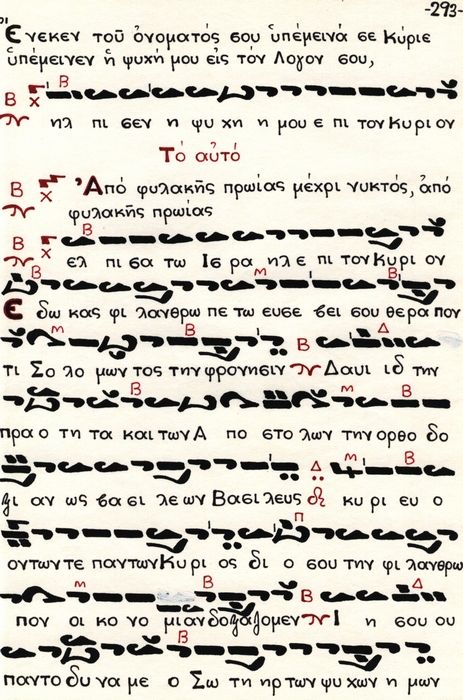 -293-
Ἕνεκεν τοῦ ὀνοματός σου ὑπέμεινά σε Κύριε
ὑπέμεινεν ἡ ψυχή μου εἰς τόν Λόγον σου,
Β
Β χ
ηλ πι σεν η ψυ χη η μου ε πι τον Κυρι ον
Τό αὐτό
Β χ Ἀπό φυλακῆς πρωίας μέχρι νυκτός, ἀπό
φυλακῆς πρωίας
Β
Β χ
ελ πι σα τω Ισ ρα ηλ ε πι τον Κυρι ον
Β м Β
Ε δω κας φι λανθρω πε τω ευσε βει σου θερα πον
м Β Β Δ
τι Σο λο μων τος την φρονησιν Δαυι ιδ την
Β м Β
πρα ο τη τα και των Α πο στο λων την ορθο δο
Δ м Β
ξι αν ως βασι λε ων Βασι λευς κυ ρι ευ ο
π
ον των τε παντων Κυρι ος δι ο σου την φι λανθρω
м Β Β Δ
πον οι κο νο μι αν δο ξα ζομεν Ι η σου ου
Β
παντο δυ να με ο Σω τη ηρ των ψυ χων η μων